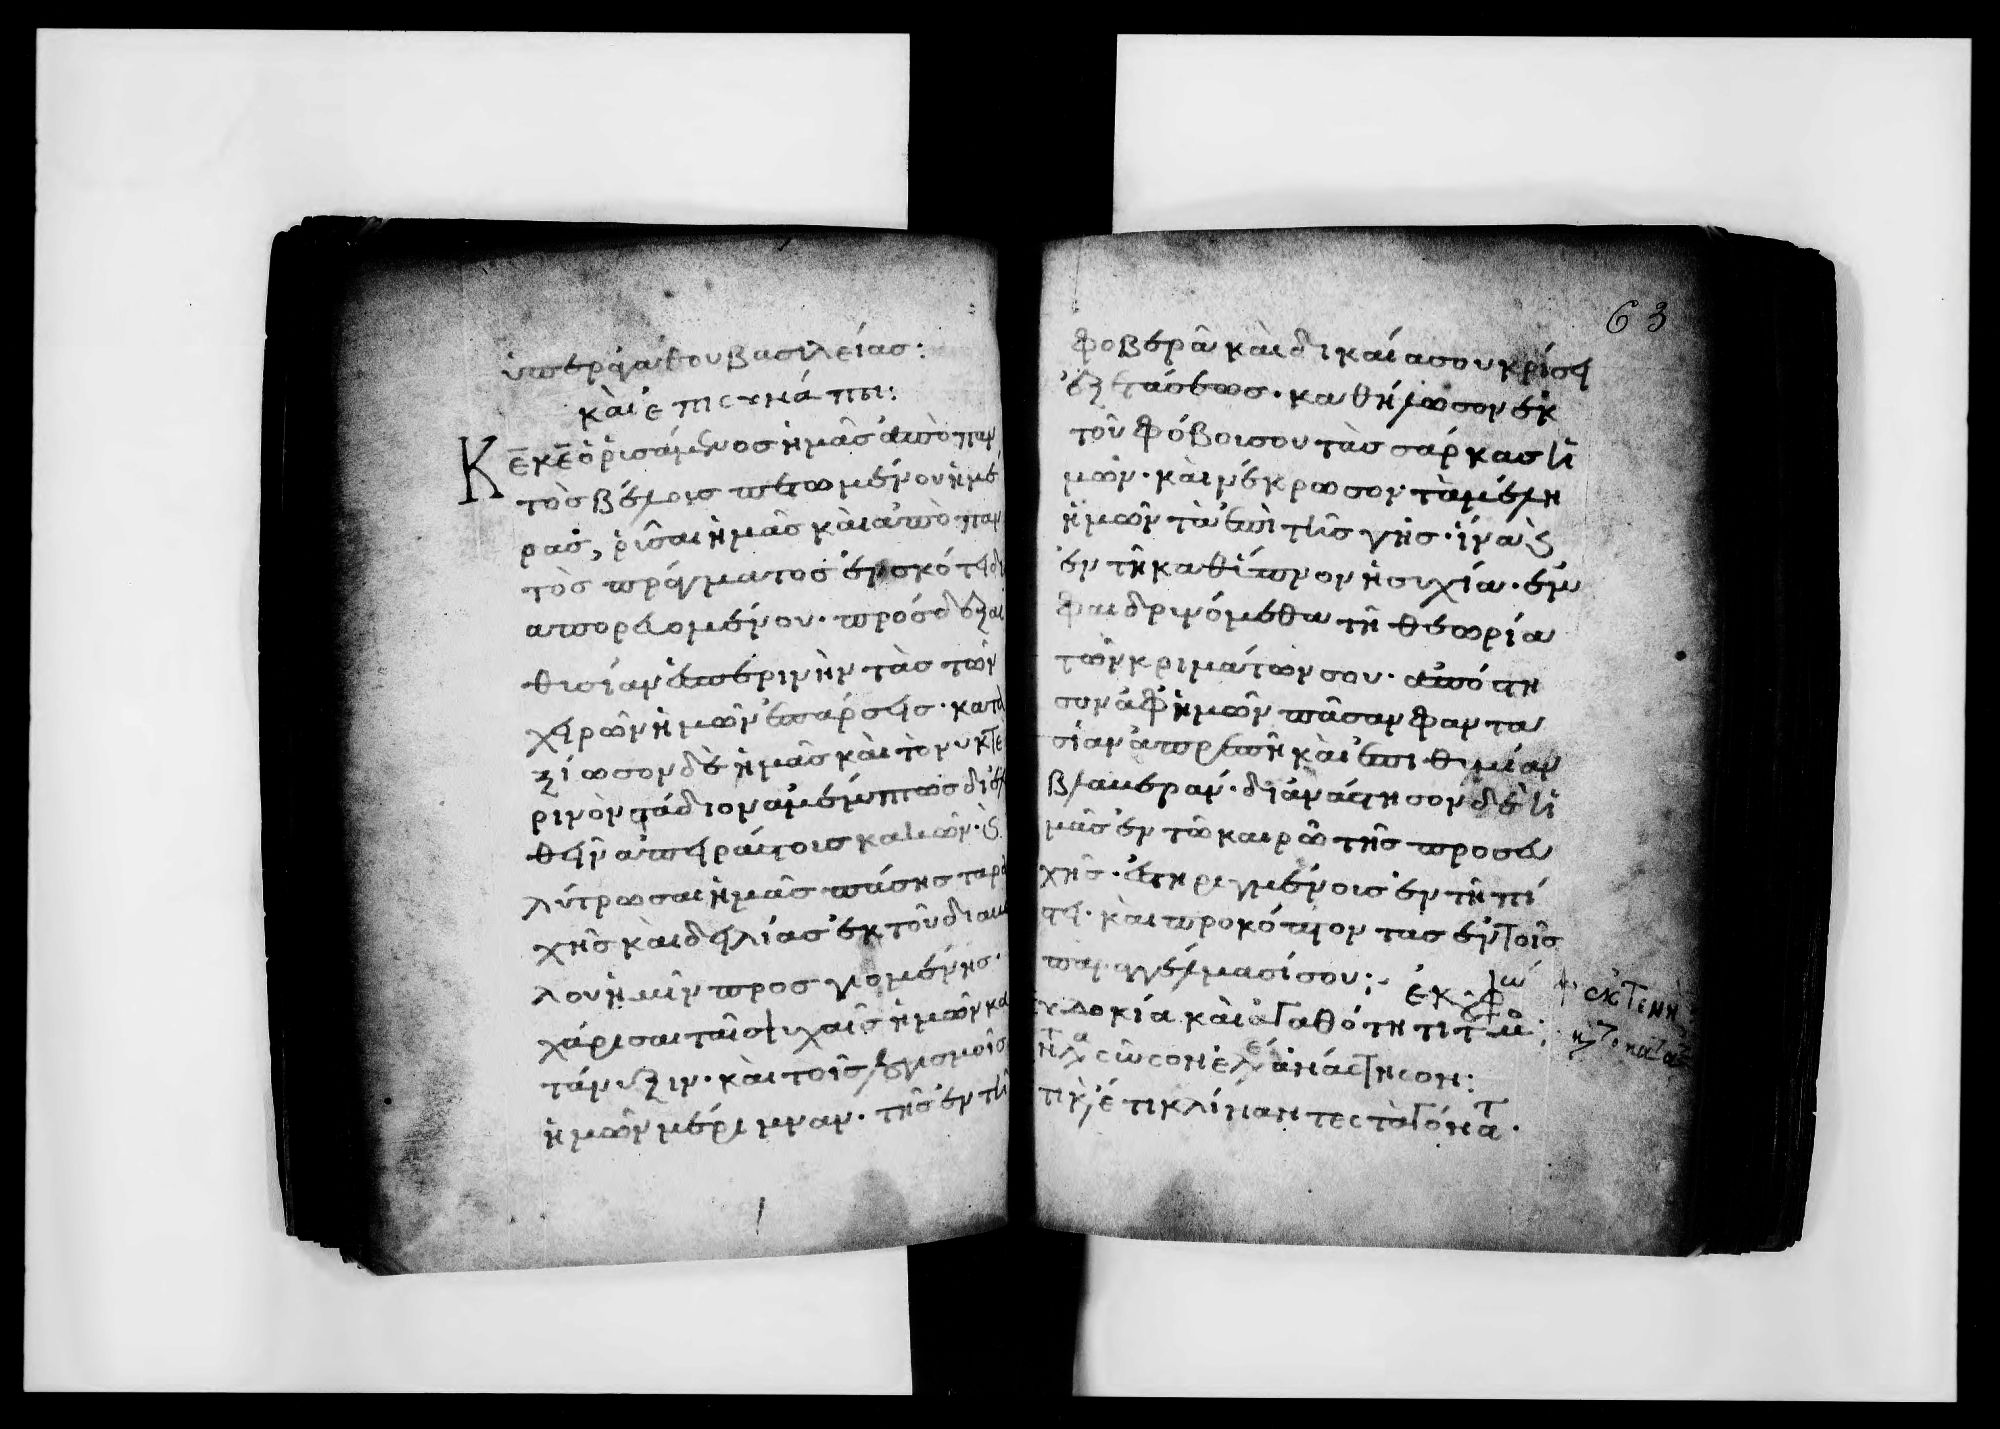 ὑπεραγάθου βασιλείας:
καὶ ἐπισυνάπτει:
Κε κε ὁ ῥισάμενος ἡμᾶς ἀπὸ παν
τὸς βέλοις πετωμένου ἡμέ
ρας, ῥῖσαι ἡμᾶς καὶ ἀπὸ παν
τὸς πράγματος ἐν σκότει δι
απορευομένου· πρόσδεξαι
θισίαν ἑσπερινὴν τὰς τῶν
χειρῶν ἡμῶν ἐπάρσεις· κατα
ξίωσον δὲ ἡμᾶς καὶ τὸ νυκτε
ρινὸν στάδιον ἀμέμπτως διελ
θεῖν ἀπειράστοις κακῶν· ϗ
λύτρωσαι ἡμᾶς πάσης ταρα
χῆς καὶ δειλίας ἐκ τοῦ διαβό
λου ἡμῖν προσγιομένης·
χάρισαι ταῖς ψυχαῖς ἡμῶν κα
τάνυξιν· καὶ τοῖς λογισμοῖς
ἡμῶν μέριμναν· τῆς ἐν τῆ
63
φοβερᾶ καὶ δικαία σου κρίσει
ἐξετάσεως· καθήλωσον ἐκ
τοῦ φόβοι σου τὰς σάρκας ἡ
μῶν· καὶ νέκρωσον τὰ μέλη
ἡμῶν τὰ ἐπὶ τῆς γῆς· ἵνα ϗ
ἐν τῆ καθ ἵπνον ἡσιχία· ἐμ
φαιδρινόμεθα τῆ θεωρία
τῶν κριμάτων σου· ἀπόστη
σον ἀφ ἡμῶν πᾶσαν φαντα
σίαν ἀπρεπῆ καὶ ἐπιθιμίαν
βλαβεράν· διάναστησον δὲ ἡ
μᾶς ἐν τῶ καιρῶ τῆς προσευ
χῆς· ἐστηριγμένοις ἐν τῆ πί
στει· καὶ προκόπτοντας ἐν τοῖς
παραγγέλμασί σου: ἐκφω
εὐδοκία καὶ ἀγαθότητι τ μο:
σῶσον ἐλε ἀνάστησον:
ἔτι κλίναντες τὰ γόνατ·